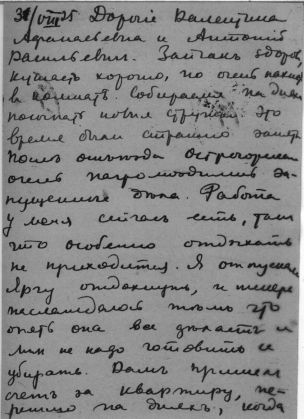 31/VIII 25 Дорогие Валентина
Афанасьевна и Антоний
Васильевич. Зайчик здоров,
кушает хорошо, но очень
в комнате. Собираемся на днях
новыя это
время были страшно заняты
После отъезда
очень нагромоздились за-
пущенные дела. Работа
у меня сейчас есть, так
что особенно отдыхать
не приходится. Я отпускал
отдохнуть, и теперь
наслаждаюсь тем что
опять она все делает и
мне не надо готовить и
убирать. Вам
счет за квартиру, пе-
решлю на днях, когда